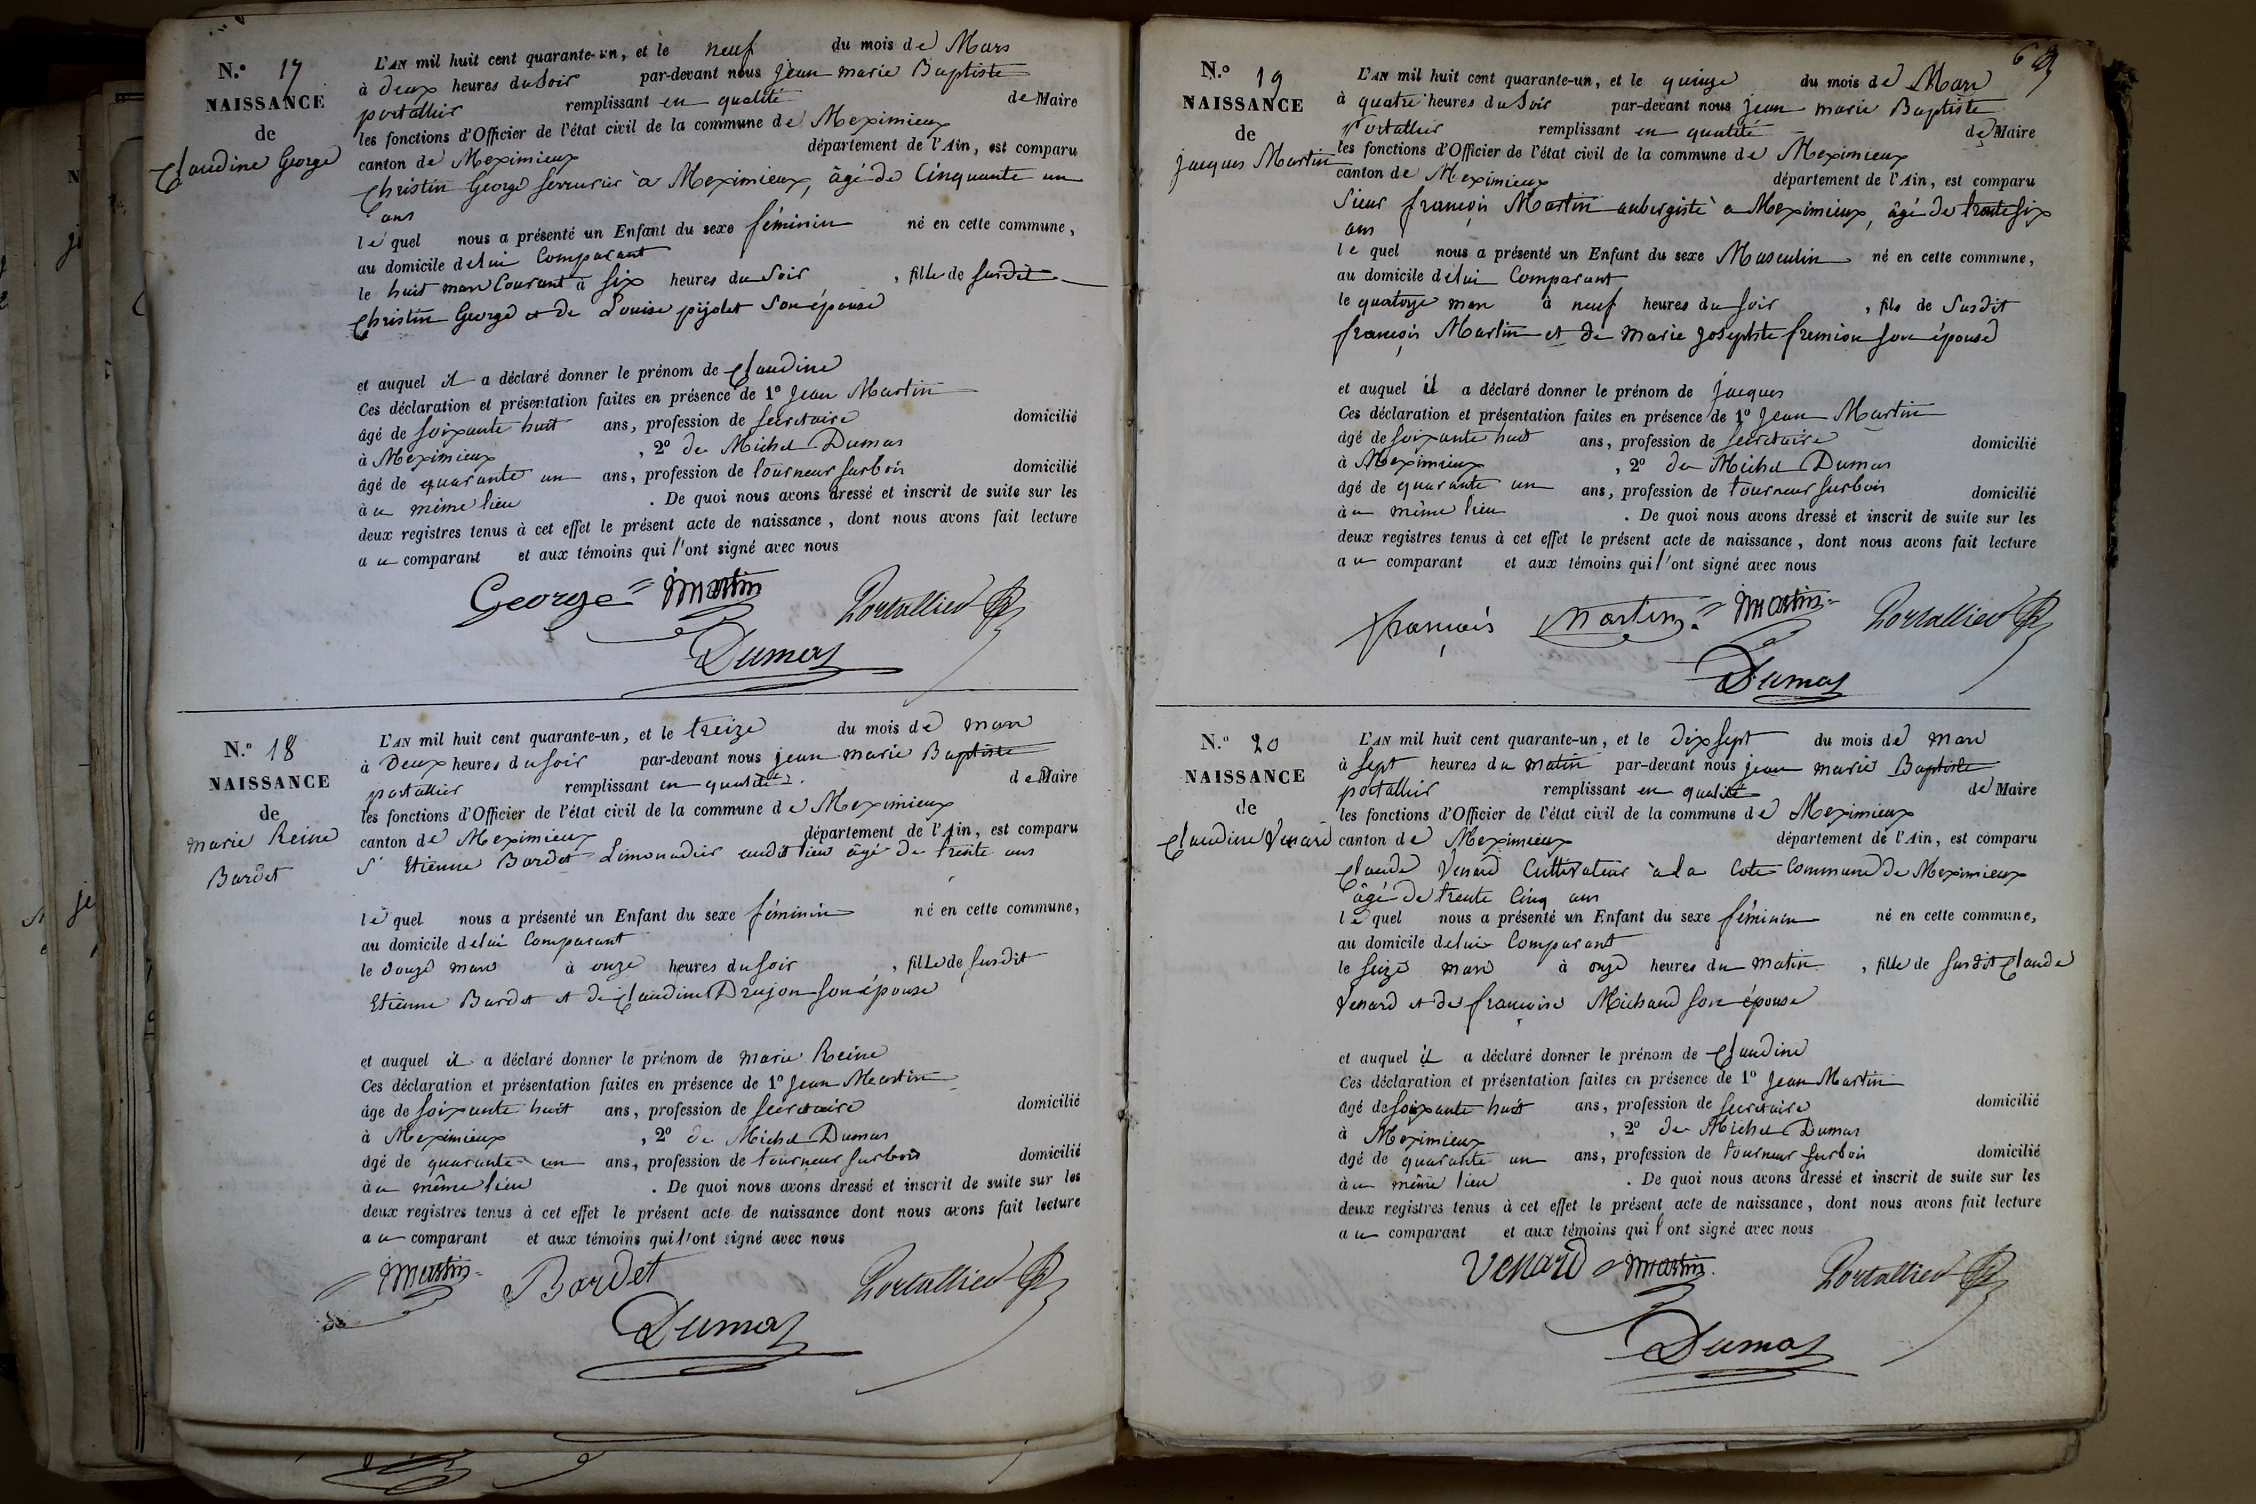 N.° 17
NAISSANCE
de
Claudine George
L'AN mil huit cent quarante-un, et le neuf du mois de Mars
à deux heures du Soir par-devant nous jean marie Baptiste
portallier remplissant en qualité de Maire
les fonctions d'Officier de l'état civil de la commune de Meximieux
canton de Meximieux département de l'Ain, est comparu
Christin George Serrurier à Meximieux, âgé de Cinquante un
ans
le quel nous a présenté un Enfant du sexe féminin né en cette commune,
au domicile de lui Comparant
le huit mars Courant à six heures du Soir, fille de susdit
Christin George et de Louise pijolet Son épouse
et auquel il a déclaré donner le prénom de Claudine
Ces déclaration et présentation faites en présence de 1° Jean Martin
âgé de soixante huit ans, profession de secretaire domicilié
à Meximieux, 2° de Michel Dumas
âgé de quarante un ans, profession de tourneur sur bois domicilié
à u même lieu. De quoi nous avons dressé et inscrit de suite sur les
deux registres tenus à cet effet le présent acte de naissance, dont nous avons fait lecture
a u comparant et aux témoins qui l'ont signé avec nous
George Martin Portallier
Dumas
N.° 18
NAISSANCE
de
marie Reine
Bardet
L'AN mil huit cent quarante-un, et le treize du mois de mars
à Deux heures du soir par-devant nous jean marie Baptiste
portallier remplissant en qualité de Maire
les fonctions d'Officier de l'état civil de la commune de Meximieux
canton de Meximieux département de l'Ain, est comparu
S.r Etienne Bardet Limonadier audit lieu âgé de trente ans
le quel nous a présenté un Enfant du sexe féminin né en cette commune,
au domicile de lui Comparant
le douze mars à onze heures du soir, fille de susdit
Etienne Bardet et de Claudine Drujon son épouse
et auquel il a déclaré donner le prénom de marie Reine
Ces déclaration et présentation faites en présence de 1° Jean Martin
âge de soixante huit ans, profession de secretaire domicilié
à Meximieux, 2° de Michel Dumas
âgé de quarante un ans, profession de tourneur sur bois domicilié
à u même lieu. De quoi nous avons dressé et inscrit de suite sur les
deux registres tenus à cet effet le présent acte de naissance dont nous avons fait lecture
a u comparant et aux témoins qui l'ont signé avec nous
Martin Bardet Portallier
Dumas
N.° 19
NAISSANCE
de
jacques Martin
L'AN mil huit cent quarante-un, et le quinze du mois de Mars
à quatre heures du Soir par-devant nous jean marie Baptiste
Portallier remplissant en qualité de Maire
les fonctions d'Officier de l'état civil de la commune de Meximieux
canton de Meximieux département de l'Ain, est comparu
Sieur françois Martin aubergiste à Meximieux, âgé de trente six
ans
le quel nous a présenté un Enfant du sexe Masculin né en cette commune,
au domicile de lui Comparant
le quatorze mars à neuf heures du soir, fils de Susdit
françois Martin et de marie josephte fremion son épouse
et auquel il a déclaré donner le prénom de jacques
Ces déclaration et présentation faites en présence de 1° Jean Martin
âgé de soixante huit ans, profession de secretaire domicilié
à Meximieux, 2° de Michel Dumas
âgé de quarante un ans, profession de tourneur sur bois domicilié
à u même lieu. De quoi nous avons dressé et inscrit de suite sur les
deux registres tenus à cet effet le présent acte de naissance, dont nous avons fait lecture
a u comparant et aux témoins qui l'ont signé avec nous
françois Martin Martin Portallier
Dumas
N.° 20
NAISSANCE
de
Claudine Venard
L'AN mil huit cent quarante-un, et le dix sept du mois de mars
à sept heures du matin par-devant nous jean marie Baptiste
portallier remplissant en qualité de Maire
les fonctions d'Officier de l'état civil de la commune de Meximieux
canton de Meximieux département de l'Ain, est comparu
Claude Venard Cultivateur à la Cote Commune de Meximieux
âgé de trente Cinq ans
le quel nous a présenté un Enfant du sexe féminin né en cette commune,
au domicile de lui Comparant
le seize mars à onze heures du matin, fille de susdit Claude
Venard et de françoise Michaud son épouse
et auquel il a déclaré donner le prénom de Claudine
Ces déclaration et présentation faites en présence de 1° Jean Martin
âgé de soixante huit ans, profession de secretaire domicilié
à Meximieux, 2° de Michel Dumas
âgé de quarante un ans, profession de tourneur sur bois domicilié
à u même lieu. De quoi nous avons dressé et inscrit de suite sur les
deux registres tenus à cet effet le présent acte de naissance, dont nous avons fait lecture
a u comparant et aux témoins qui l'ont signé avec nous
Venard Martin Portallier
Dumas